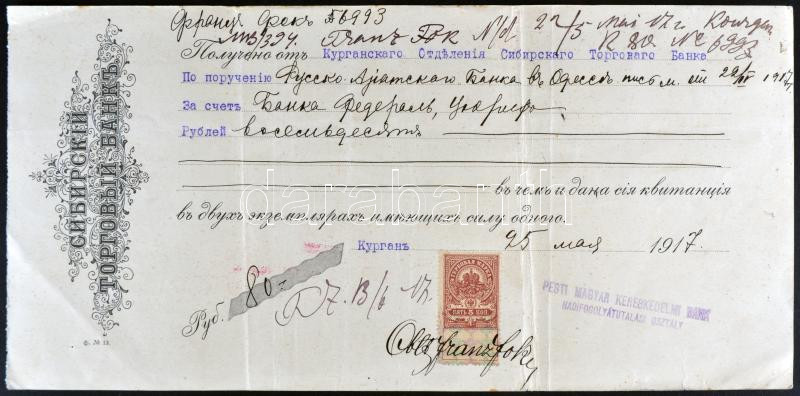 Францъ Фокъ № 6993
Franz Fok 22/5 Mai 17 г. Kourgan
№ 6993
Получено отъ Курганскаго Отдѣленія Сибирскаго Торговаго Банка
По порученію Русско-Азіатскаго Банка въ Одессѣ письм. от 1917 г.
За счетъ Банка Федераль, Цюрихъ
Рублей восемьдесятъ
въ чемъ и дана сія квитанція
въ двухъ экземплярахъ имѣющихъ силу одного.
Курганъ 25 мая 1917.
Руб. 80-
13/6 17.
СИБИРСКІЙ
ТОРГОВЫЙ БАНКЪ
Ф. № 13.
ГЕРБОВАЯ МАРКА
ПЯТЬ 5 КОП.
PESTI MAGYAR KERESKEDELMI BANK
HADIFOGOLYÁTUTALÁSI OSZTÁLY
darabanth